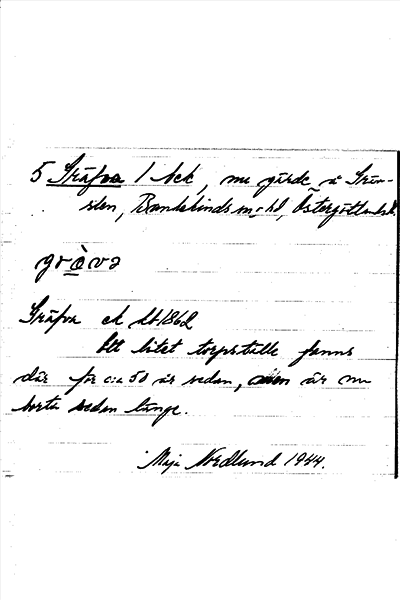 5 Gräfva 1 bek, nu gärde å Grän-
sten, Bankekinds sn o hd, Östergötlands l.
gròvə
Gräfva ek bt 1862
Ett litet torpställe fanns
där för c:a 50 år sedan, men är nu
borta sedan länge.
Maja Nordlund 1944.